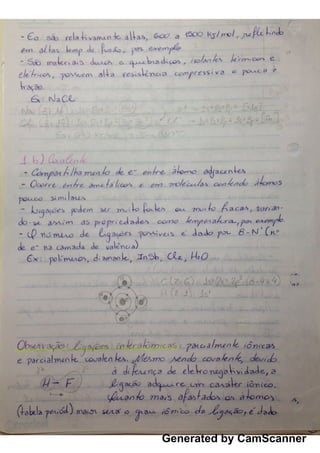 - Eo são relativamente altas, 600 a 1500 KJ/mol, refletindo
em altas temp de fusão, por exemplo
- São materiais duros e quebradiços, isolantes térmicos e
elétricos, possuem alta resistência compressiva e pouca a
tração.
Ex: NaCl
1. b) Covalente
- Compartilhamento de e⁻ entre átomo adjacentes
- Ocorre entre ametálicos e em moléculas contendo átomos
pouco similares
- Ligações podem ser muito fortes ou muito fracas, varian-
do-se assim as propriedades como temperatura, por exemplo
- O número de ligações possíveis é dado por 8-N' (nº
de e⁻ na camada de valência)
Ex: polímeros, diamante, InSb, Cl₂, H₂O
Observação: Ligações interatômicas: parcialmente iônicas
e parcialmente covalentes. Mesmo sendo covalente, devido
à diferença de eletronegatividade, a
H - F
ligação adquire um caráter iônico.
Quanto mais afastados os átomos
(tabela period) maior será o grau iônico da ligação, é dado
Generated by CamScanner